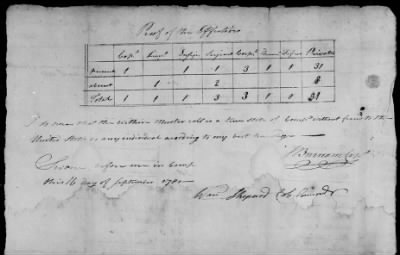 Proof of the Effectives
Capt. Lieut. Ensign Serjeant Corpl. Drum Fifer Privates
present 1 1 1 3 1 1 31
absent 1 2 8
Total 1 1 1 3 3 1 1 31
I do swear that the within Muster roll is a true state of Compy without fraud to the
United States or any individual according to my best
Sworn before me in Camp
this 16 day of September 1780
Burnam Capt
Wm Shepard Colo Comdt